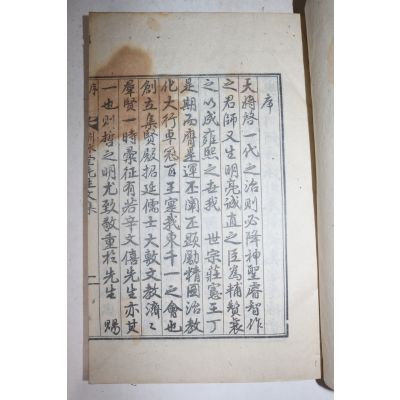 序
天將啓一代之治則必降神聖睿智作
之君師又生明亮誠直之臣爲輔贊襄
之以成雍熙之美我 世宗莊憲王丁
是期而膺是運丕闡正顯勵精圖治敎
化大行卓冠百王寔我東千一之會也
創立集賢殿招延儒士大敦文敎濟〻
羣賢一時彙征有若辛文僖先生亦其
一也則哲之明尤致敬重於先生 賜
序 先生文集 一